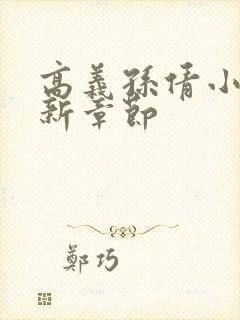 高義孫倩小
新章節
鄭巧